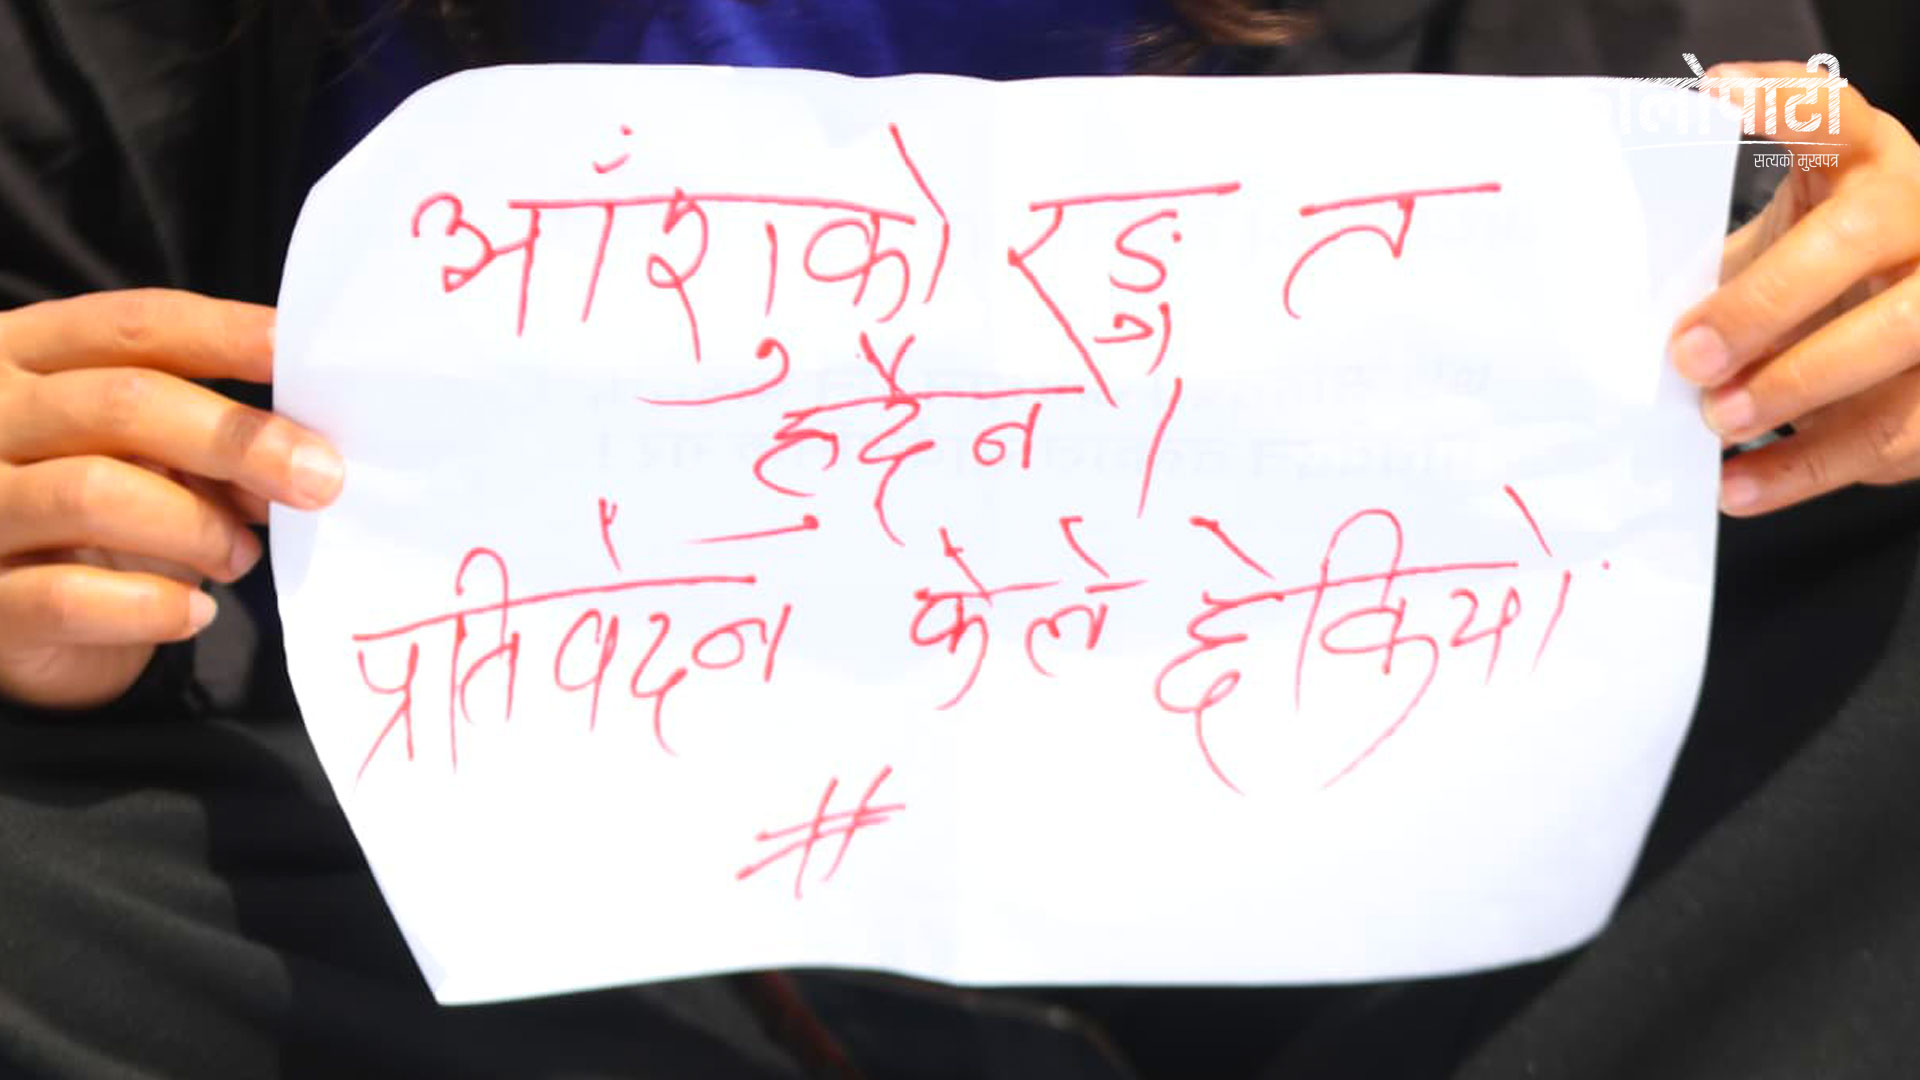 ालोपाटी
सत्यको मुखपत्र
आंशुको रङ्ग त
हुदैन ।
प्रतिवेदन केले छेकियो
#